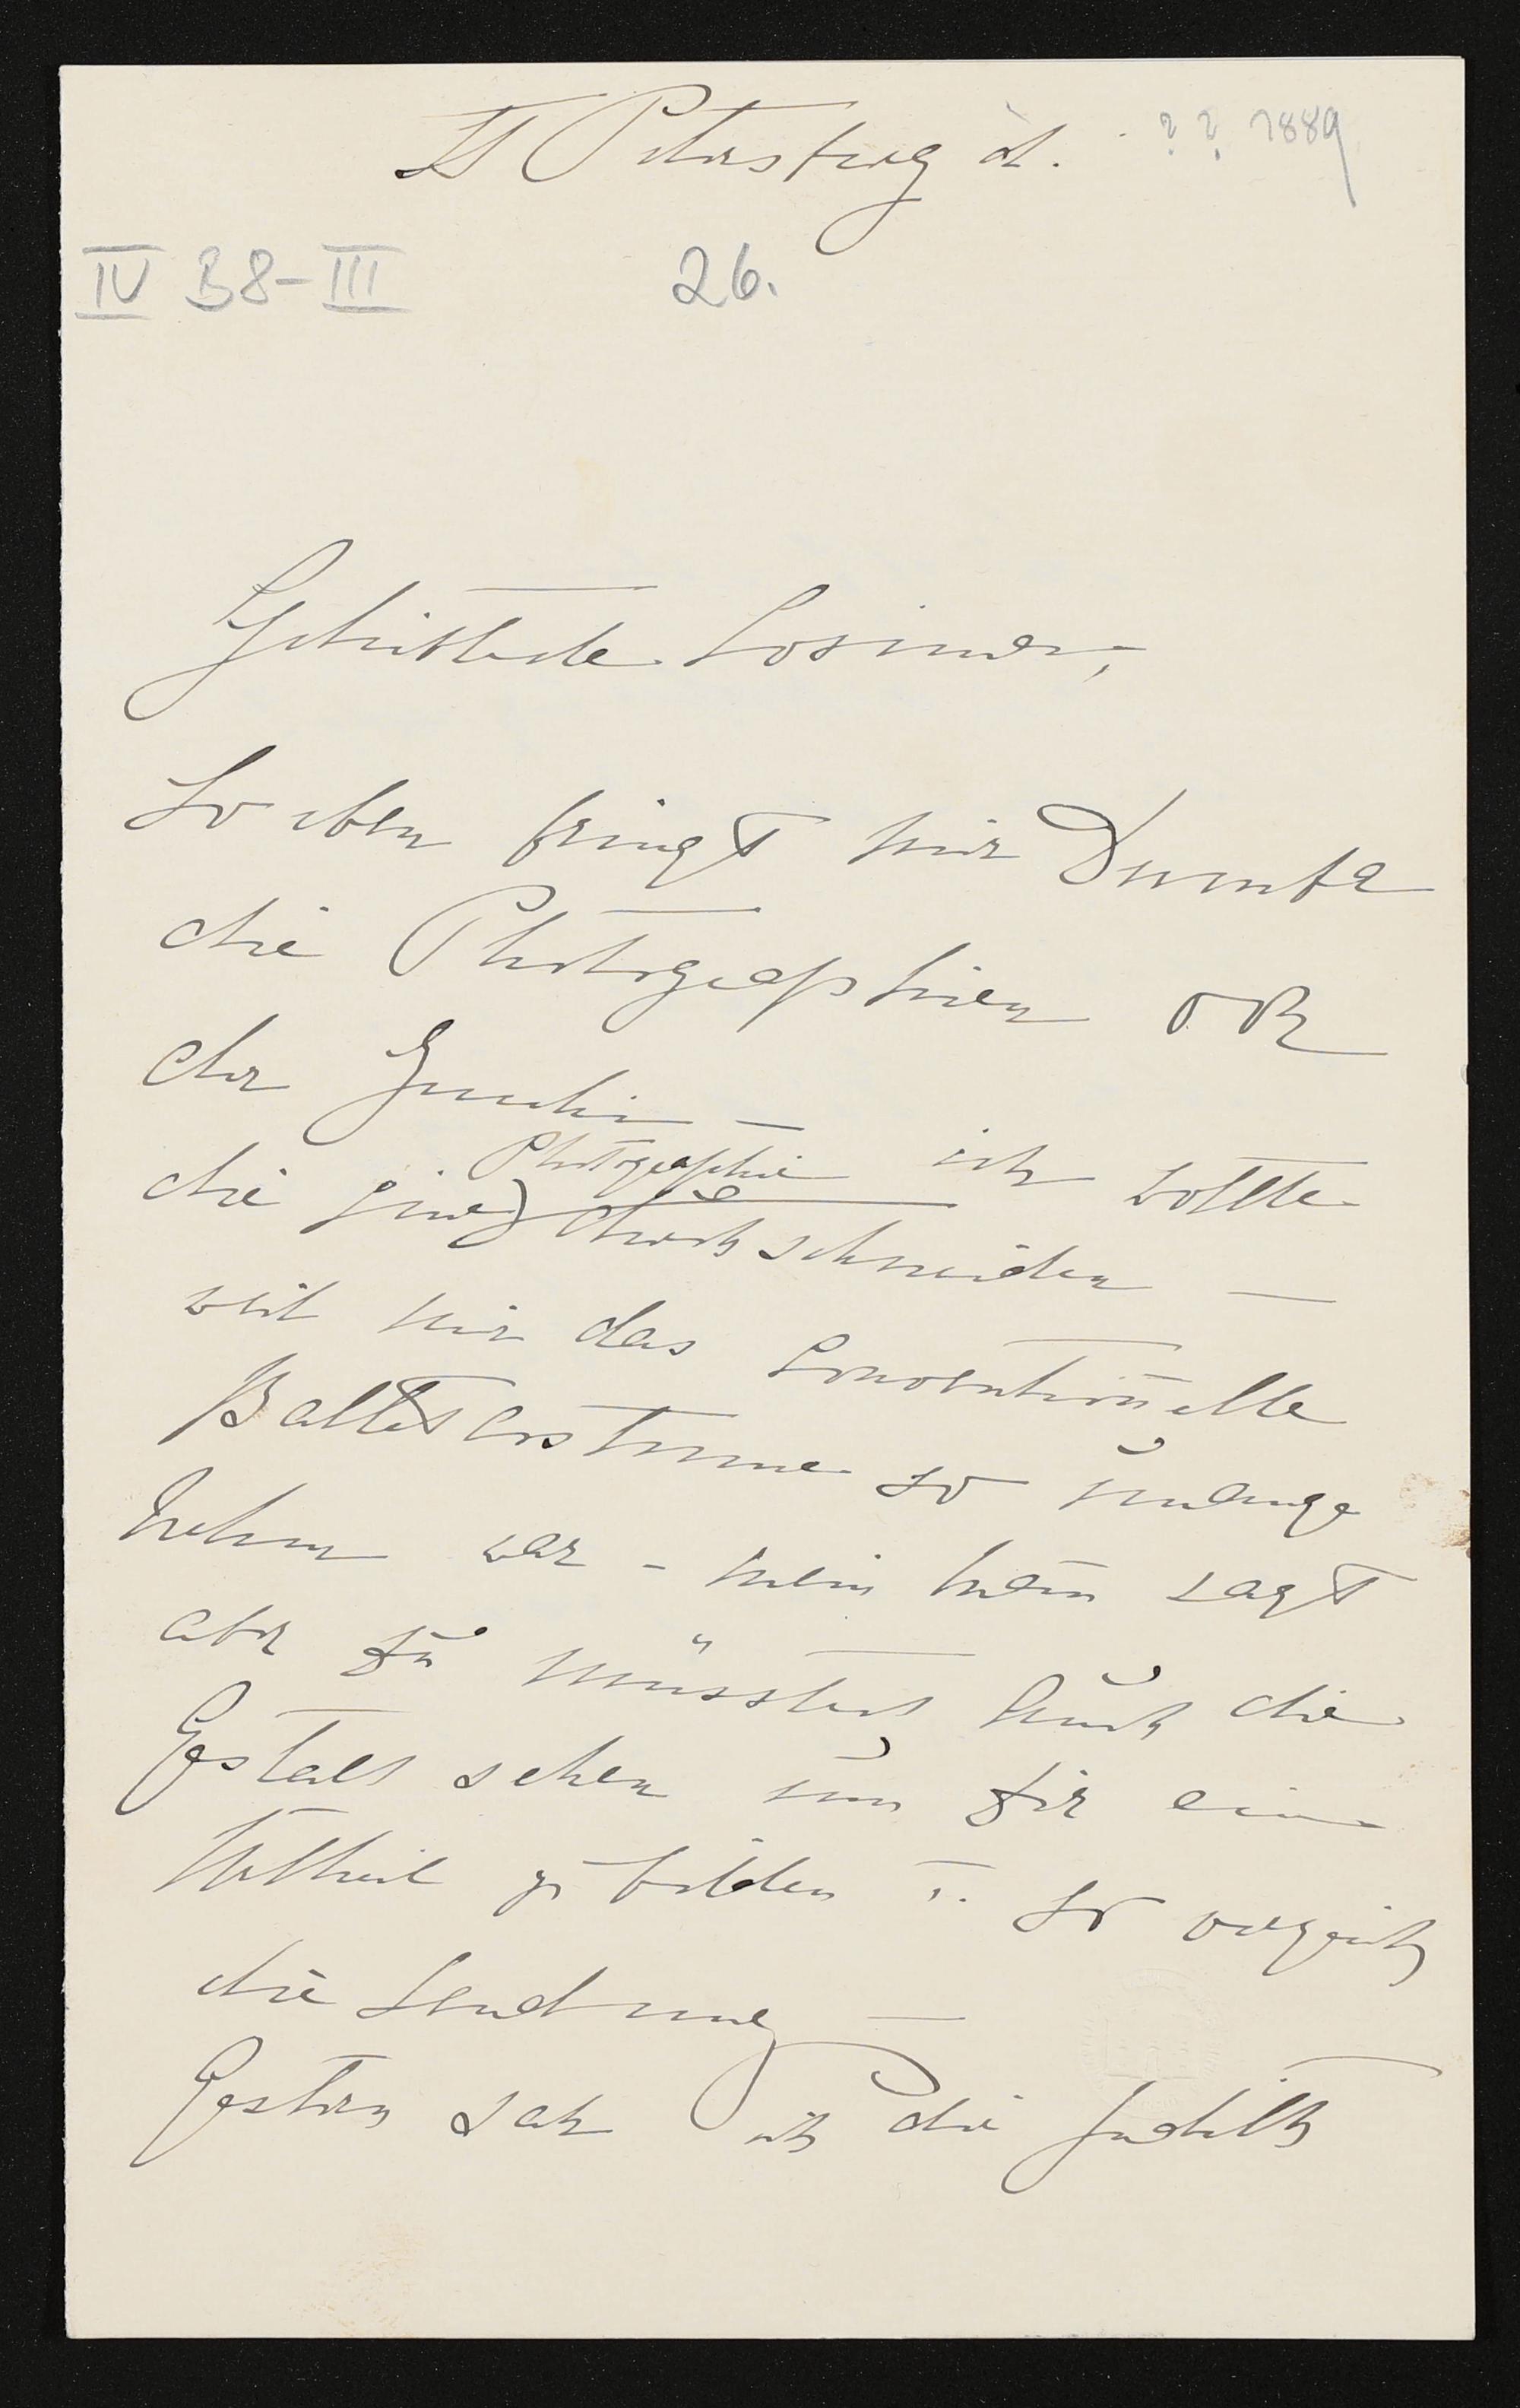 St Petersburg d. ? ? 1889
IV B8-III 26.
Geliebteste Cosima,
So eben bringt mir Dumba
die Photographien von
der Zucchi –
die eine Photographie ich wollte
durchschneiden –
weil mir das Conventionelle
Balletcostume so unange
nehm war – mein Mann sagt
aber Du müsstest auch die
Gestalt sehen um Dir ein
Urtheil zu bilden u. so verzeih
die Sendung –
Gestern sah ich die Judith